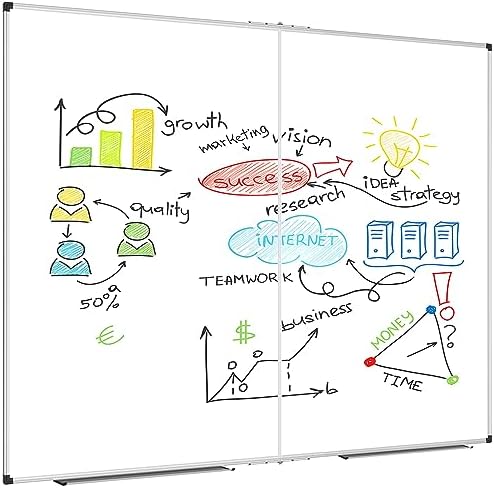 growth
marketing
vision
success
iDEA
strategy
research
quality
iNTERNET
TEAMWORK
50%
€
$
business
b
MONEY
TIME
!
?